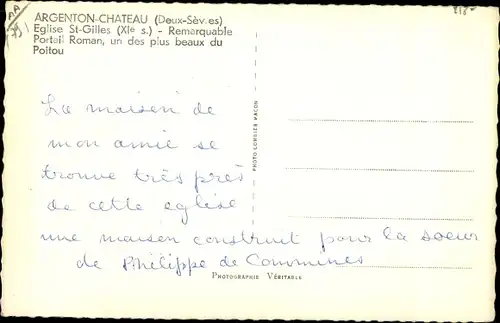 ARGENTON-CHATEAU (Deux-Sèvres)
Eglise St-Gilles (XIe s.) - Remarquable
Portail Roman, un des plus beaux du
Poitou
La maison de
mon amie se
trouve très près
de cette eglise
une maison construit pour la soeur
de Philippe de Commines
PHOTOGRAPHIE VÉRITABLE
PHOTO COMBIER MACON